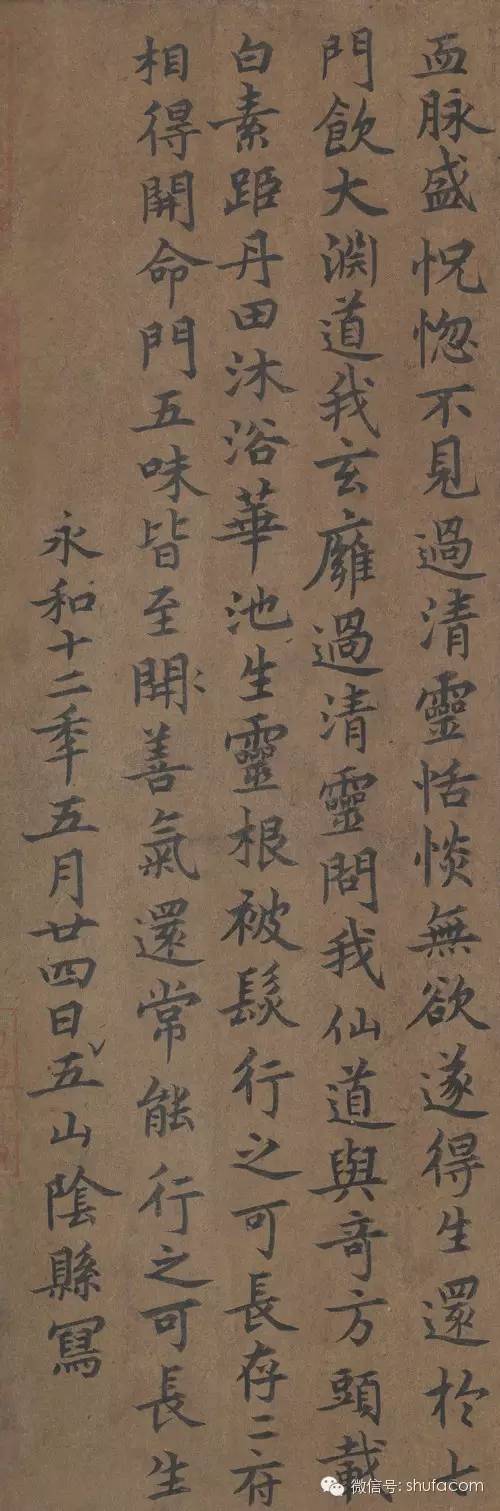 血脉盛怳惚不見過清靈恬惔無欲遂得生還於七
門飲大淵道我玄廱過清靈問我仙道與奇方頭載
白素距丹田沐浴華池生靈根被髮行之可長存二府
相得開命門五味皆至開善氣還常能行之可長生
永和十二年五月廿四日五山陰縣寫
微信号: shufacom